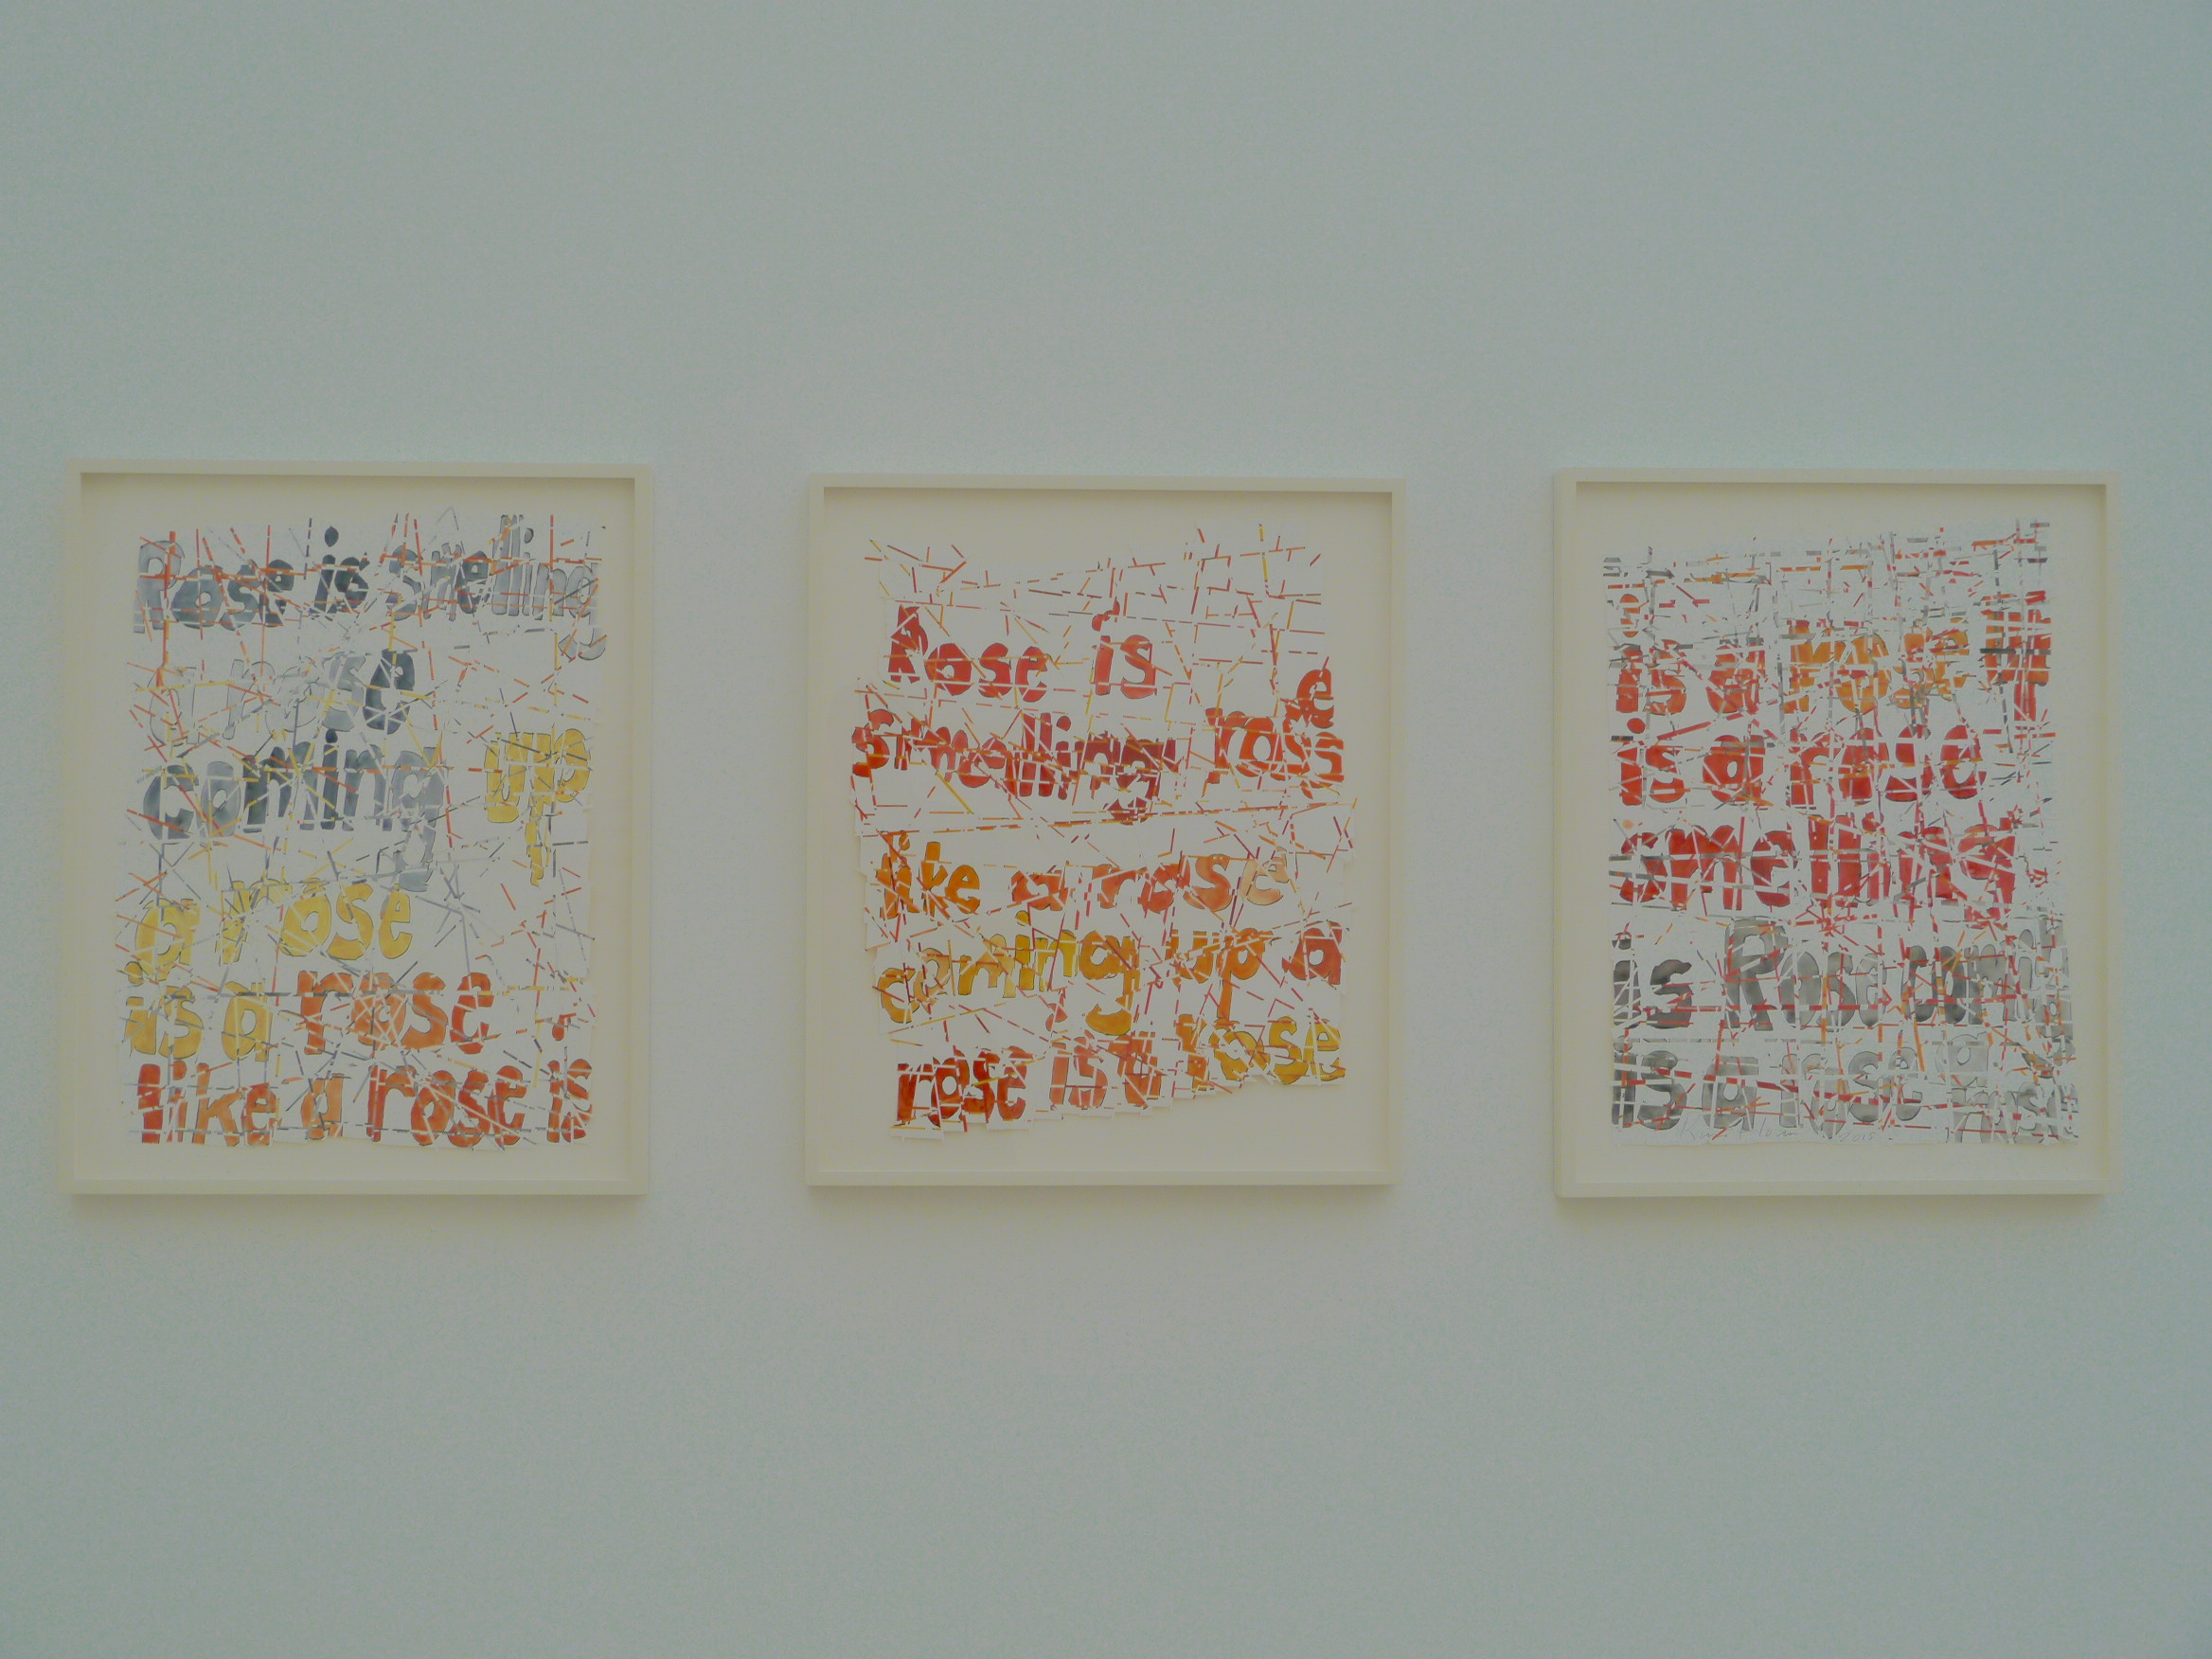 Rose is smelling
a rose
coming up
a rose
is a rose
like a rose is
Rose is
smelling rose
like a rose
coming up a
rose is a rose
is a rose
is a rose
smelling
is Rose coming
is a rose a
2015